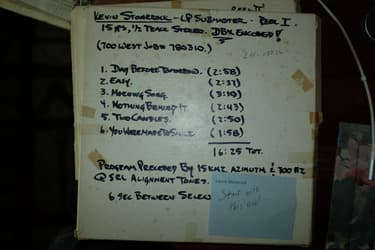 REEL II
KEVIN STONEROCK - LP SUBMASTER - REEL I
15 IPS, 1/2 TRACK STEREO. DBX ENCODED!
(700 WEST JOB# 780310.)
1. DAY BEFORE TOMORROW. (2:58)
2. EASY. (2:37)
3. MORNING SONG.
4. NOTHING BEHIND IT. (2:43)
5. TWO CANDLES. (2:50)
6. YOU WERE MADE TO SMILE (1:58)
16:25 TOT.
PROGRAM PRECEDED BY 15KHZ AZIMUTH & 700 HZ
@ SEL ALIGNMENT TONES.
Start with
this Reel
6 SEC BETWEEN SELEC